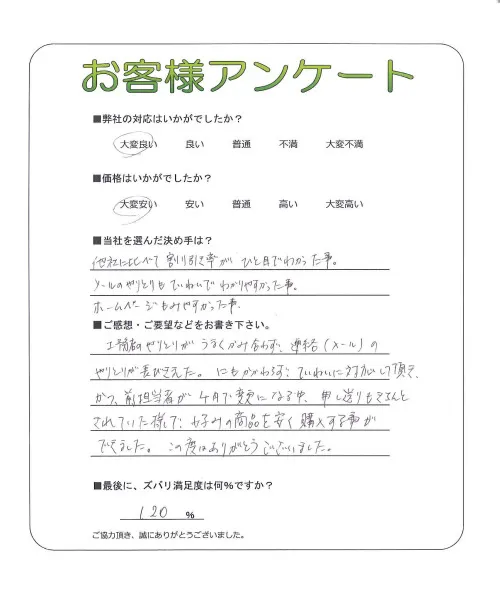 お客様アンケート
■弊社の対応はいかがでしたか？
大変良い 良い 普通 不満 大変不満
■価格はいかがでしたか？
大変安い 安い 普通 高い 大変高い
■当社を選んだ決め手は？
他社に比べて割り引き率がひと目でわかった事。
メールのやりとりもていねいでわかりやすかった事。
ホームページもみやすかった事。
■ご感想・ご要望などをお書き下さい。
工務店のやりとりがうまくかみ合わず、連絡(メール)の
やりとりが長びきました。にもかかわらず、ていねいに対応して頂き、
かつ、前担当者が4月で変更になる中、申し送りもきちんと
されていた様で、好みの商品を安く購入する事が
できました。この度はありがとうございました。
■最後に、ズバリ満足度は何％ですか？
120 ％
ご協力頂き、誠にありがとうございました。